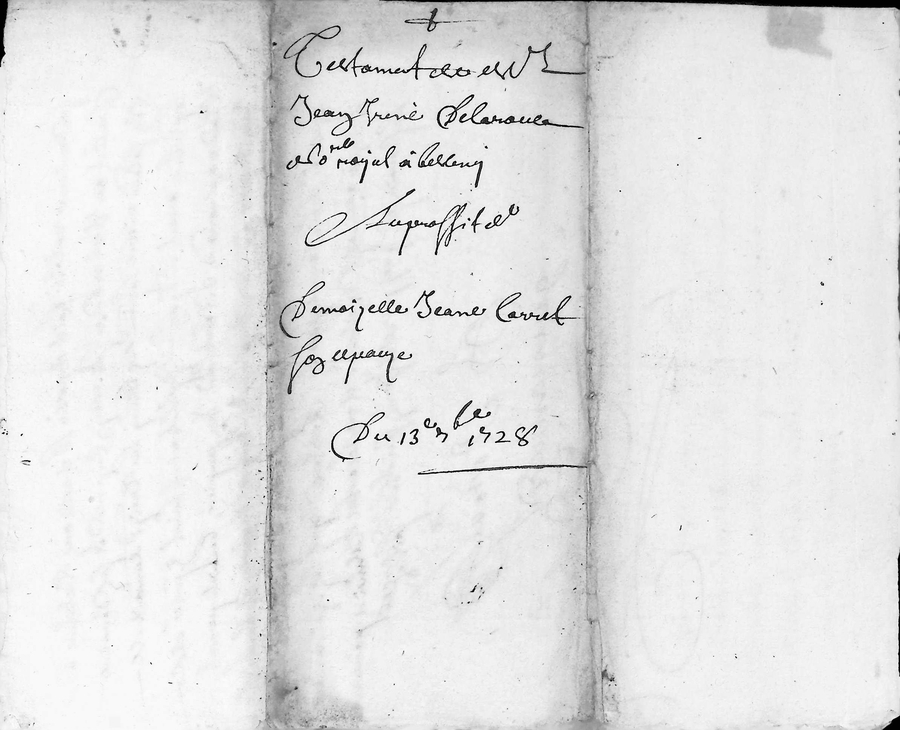 Testament de Sr
Jean Irené Delaroue
No.re royal à
Au proffit de
Demoizelle Jeane Carrel
son epouze
Du 13e 7bre 1728